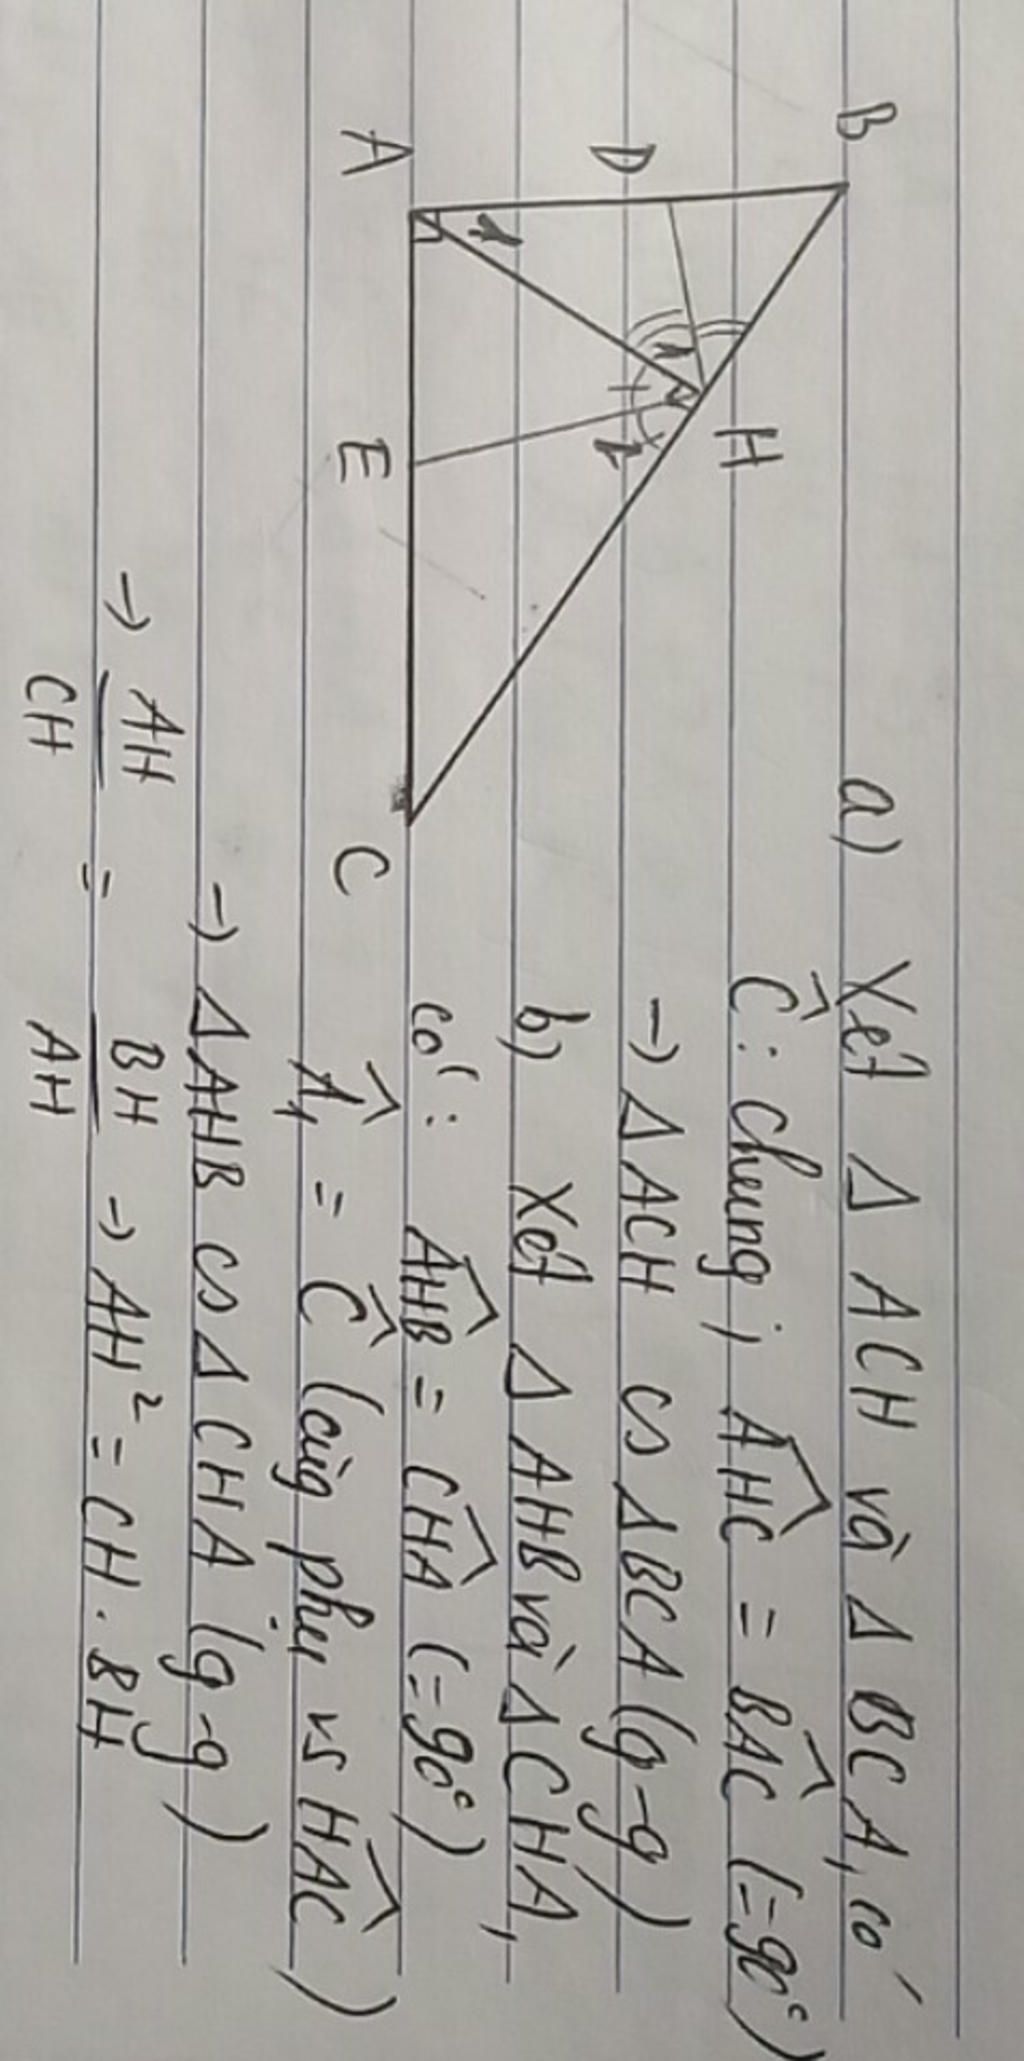 B
D
H
1
1
2
A
E
C
a) Xét Δ ACH và Δ BCA, có
Ĉ: chung; AHC = BAC (=90°)
→ Δ ACH ∽ Δ BCA (g-g)
b) Xét Δ AHB và Δ CHA,
có: AHB = CHA (=90°)
Â₁ = Ĉ (cùg phụ vs HAC)
→ Δ AHB ∽ Δ CHA (g-g)
→ AH/CH = BH/AH → AH² = CH . BH